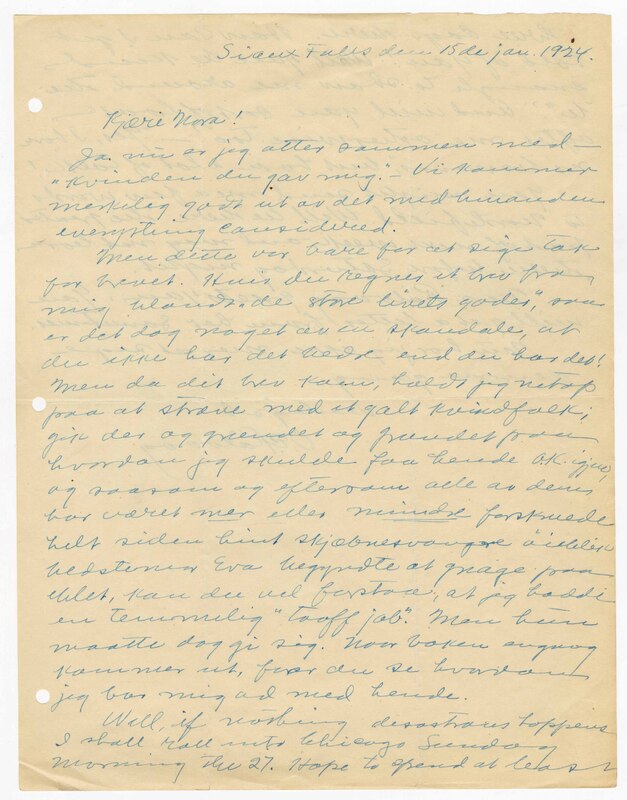 Sioux Falls den 15de jan. 1924.
Kjære Nora!
Ja nu er jeg atter sammen med —
"kvinden du gav mig." — Vi kommer
merkelig godt ut av det med hinanden
everything considered.
Men dette var bare for at sige tak
for brevet. Hvis du regner et brev fra
mig blandt "de store livets goder", saa
er det dog noget av en skandale, at
du ikke har det bedre end du har det!
Men da dit brev kom, holdt jeg netop
paa at stræve med et galt kvindfolk;
gik der og grundet og grundet paa
hvordan jeg skulde faa hende O.K. igjen,
og saasom og eftersom alle av dem
har været mer eller mindre forskruede
helt siden hint skjæbnesvangre øieblik
bedstemor Eva begyndte at gnage paa
eblet, kan du vel forstaa, at jeg hadde
en temmelig "tooff job". Men hun
maatte dog gi sig. Naar boken engang
kommer ut, faar du se hvordan
jeg bar mig ad med hende.
Well, if nothing desastrous happens
I shall roll into Chicago Sunday
Morning the 27. Hope to spend at least